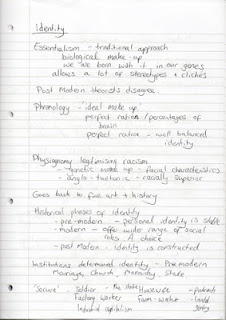 Identity
Essentialism - traditional approach
biological make-up
we are born with it in our genes
allows a lot of stereotypes + clichés
Post Modern theorists disagree.
Phrenology - "ideal make up"
perfect ratio / percentages of
brain
perfect ratio - well balanced
identity
Physiognomy legitimising racism
- genetic make up - facial characteristics
- anglo - teutonic - racially superior
Goes back to fine art + history
Historical phases of identity
- pre-modern - personal identity is stable
- modern - offer wider range of social
roles. A choice
- post Modern - identity is constructed
Institutions determined identity - Premodern
Marriage, Church, Monarchy, State
'Secure' Soldier - the state Housewife -
Factory Worker Farm-worker - landed
Industrial capitalism